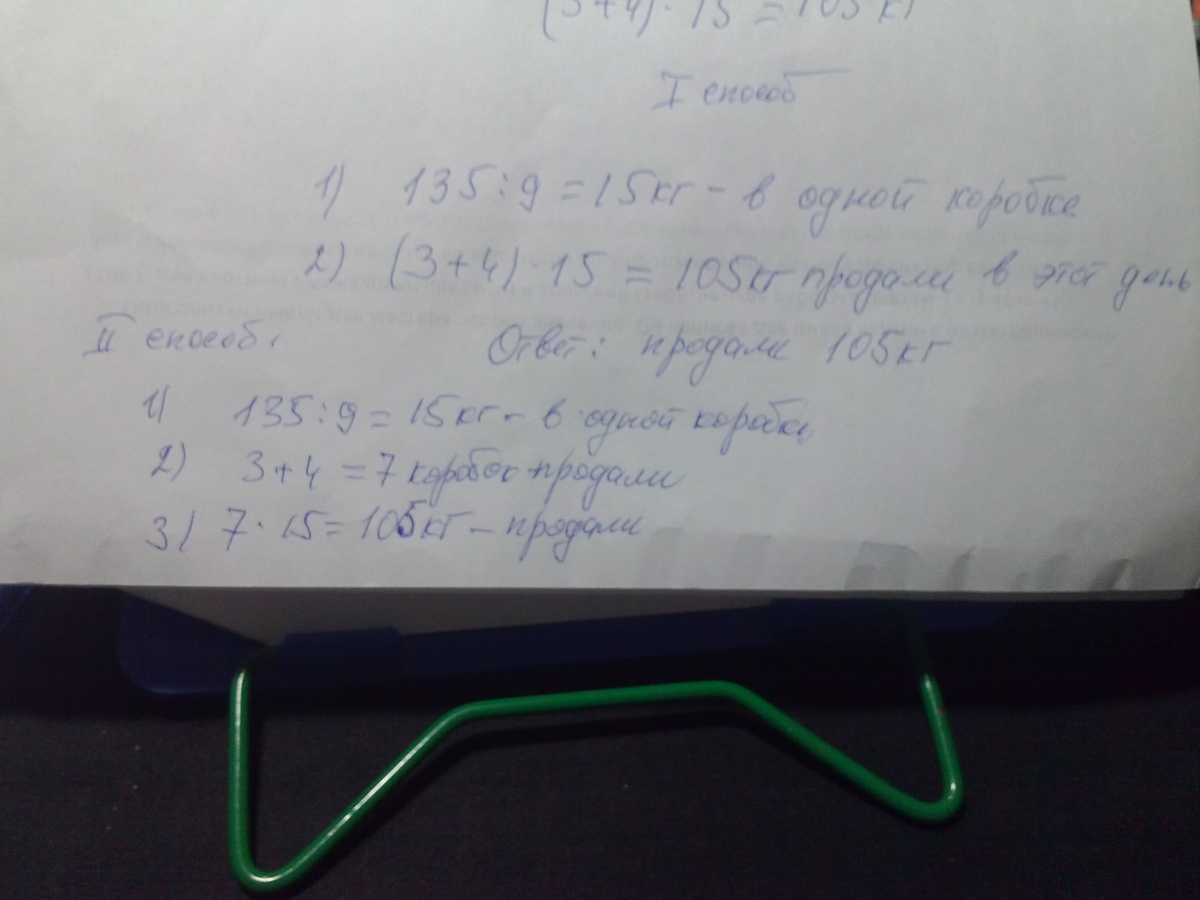 (3+4)·15 = 105 кг
I способ
1) 135:9 = 15кг - в одной коробке
2) (3+4)·15 = 105кг продали в этот день
II способ:
Ответ: продали 105кг
1) 135:9 = 15кг - в одной коробке
2) 3+4 = 7 коробок - продали
3) 7·15 = 105кг - продали